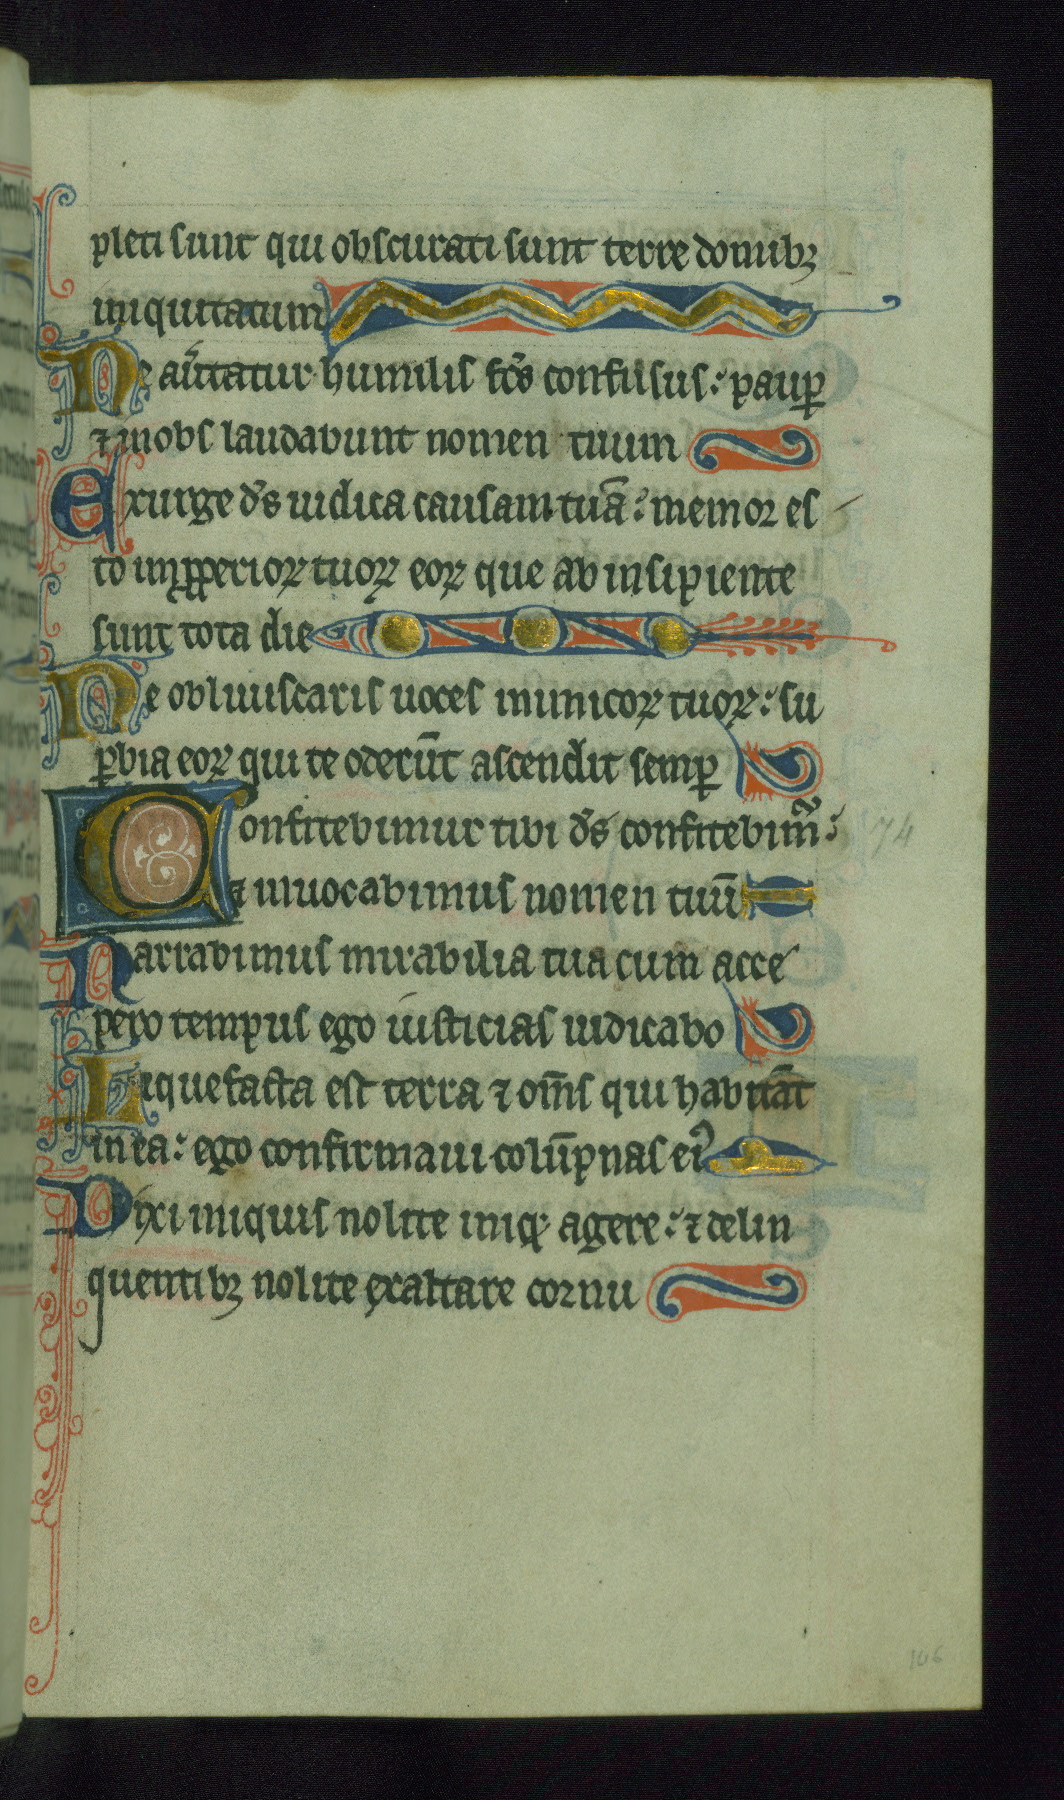 pleti sunt qui obscurati sunt terre domibꝫ
iniquitatum
Ne au̾tatur humilis fc̄s confusus: paup̲
⁊ inobs laudabunt nomen tuum
Exurge d̄s iudica causam tuā: memor es
to imꝓꝑerioꝝ tuoꝝ eoꝝ que ab insipiente
sunt tota die
Ne obliuiscaris uoces inimicoꝝ tuoꝝ: su
ꝑbia eoꝝ qui te oderūt ascendit semꝑ
Confitebimur tibi d̄s confitebim᷑:
⁊ inuocabimus nomen tuū
Narrabimus mirabilia tua cum acce
pero tempus ego iusticias iudicabo
Liquefacta est terra ⁊ om̄s qui habitāt
in ea: ego confirmaui colūpnas eiꝰ
Dixi iniquis nolite iniqꝫ agere: ⁊ delin
quentibꝫ nolite exaltare cornu
74
106